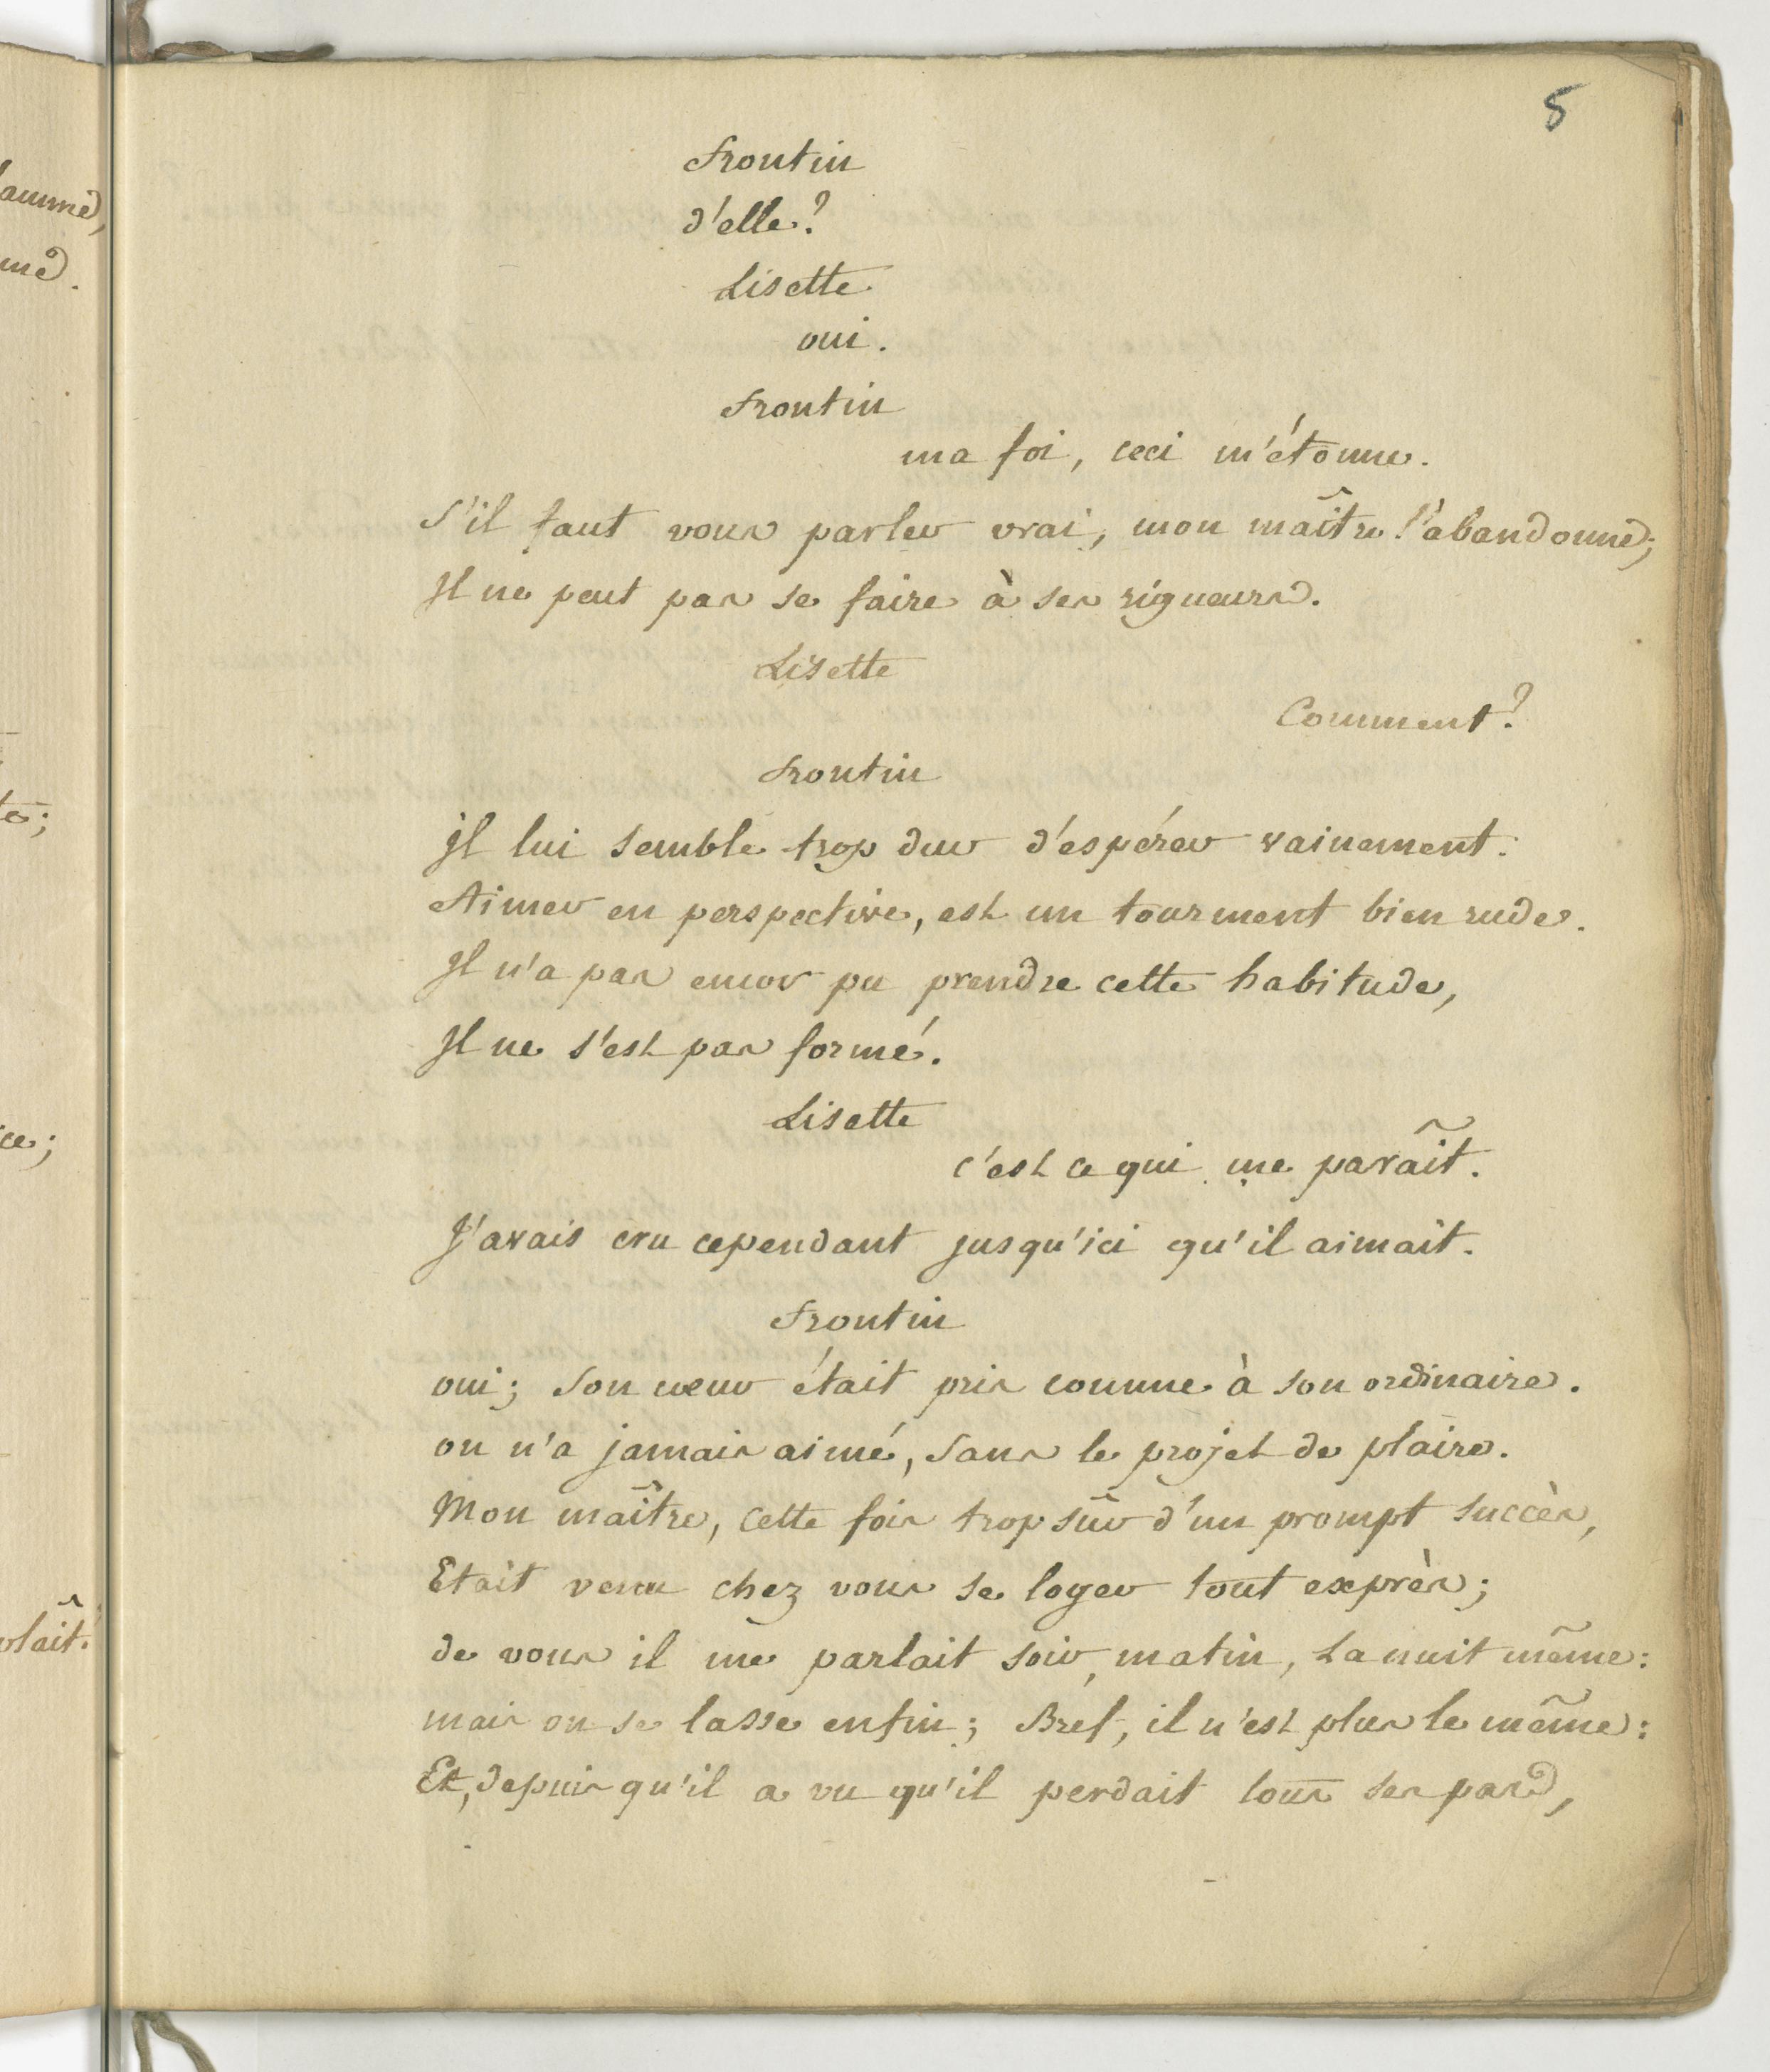 5
Frontin
d'elle?
Lisette
oui.
Frontin
ma foi, ceci m'étonne.
S'il faut vous parler vrai, mon maître l'abandonne;
Il ne peut pas se faire à ses rigueurs.
Lisette
Comment?
Frontin
Il lui semble trop dur d'espérer vainement.
Aimer en perspective, est un tourment bien rude.
Il n'a pas encor pu prendre cette habitude,
Il ne s'est pas formé.
Lisette
c'est ce qui me paraît.
J'avais cru cependant jusqu'ici qu'il aimait.
Frontin
oui; son cœur était pris comme à son ordinaire.
on n'a jamais aimé, sans le projet de plaire.
Mon maître, cette fois trop sûr d'un prompt succès,
Etait venu chez vous se loger tout exprès;
de vous il me parlait soir, matin, la nuit même:
mais on se lasse enfin; Bref, il n'est plus le même:
Et, depuis qu'il a vu qu'il perdait tous ses pas,